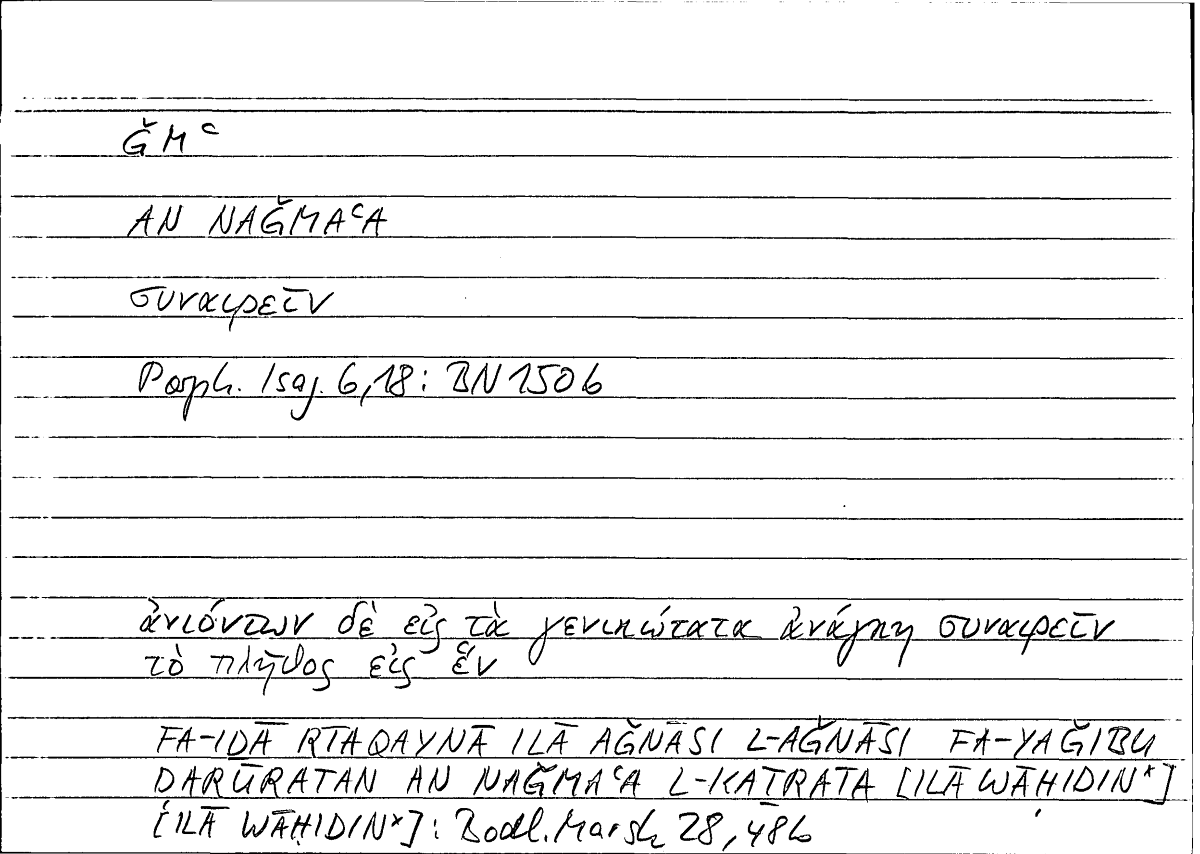 ǦMʿ
AN NAǦMAʿA
συναιρεῖν
Porph. Isag. 6,18: BN 150b
ἀνιόντων δὲ εἰς τὰ γενικώτατα ἀνάγκη συναιρεῖν
τὸ πλῆθος εἰς ἕν
FA-IḎĀ RTAQAYNĀ ILĀ AǦNĀSI L-AǦNĀSI FA-YAǦIBU
DARŪRATAN AN NAǦMAʿA L-KAṮRATA [ILĀ WĀḤIDIN*]
[ILĀ WĀḤIDIN*]: Bodl. Marsh 28, 48b